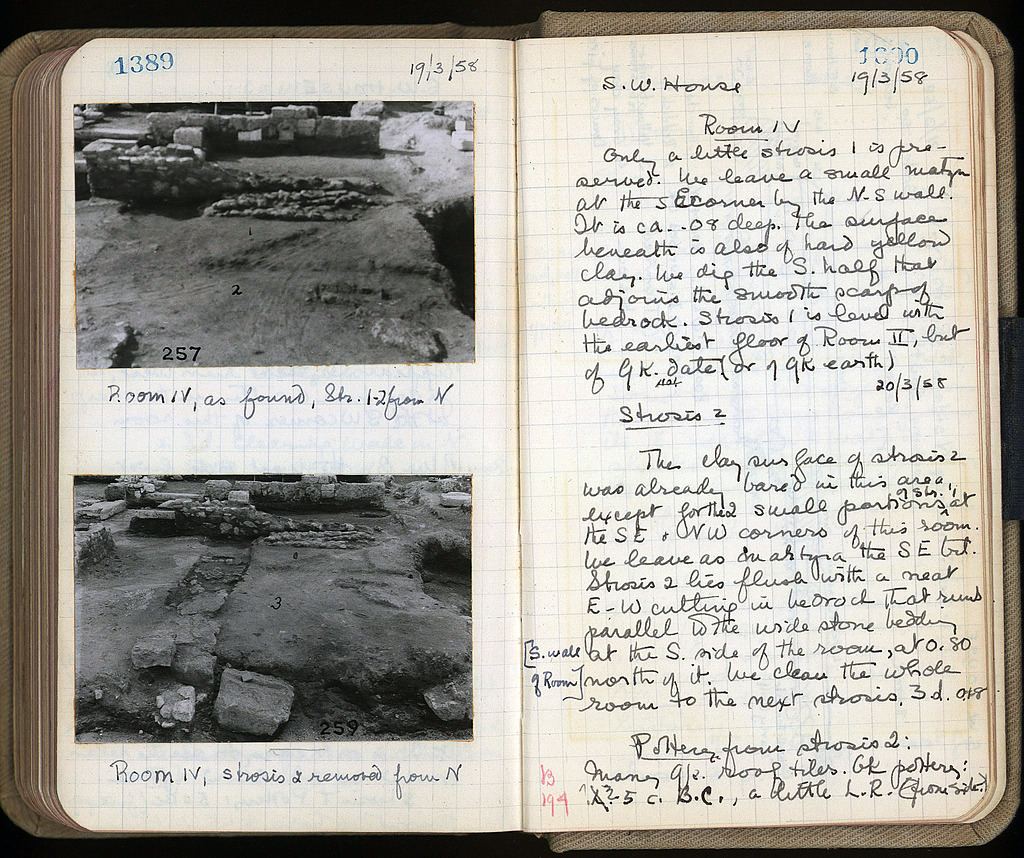 1389
19/3/58
1
2
257
Room IV, as found, Str. 1-2 from N
3
259
Room IV, strosis 2 removed from N
1390
19/3/58
S.W. House
Room IV
Only a little strosis 1 is pre-
served. We leave a small martyra
at the SE corner by the N-S wall.
It is ca. .08 deep. The surface
beneath is also of hard yellow
clay. We dig the S. half that
adjoins the smooth scarp of
bedrock. Strosis 1 is level with
the earliest floor of Room II, but
of Gk. date (or of Gk earth)
20/3/58
Strosis 2
The clay surface of strosis 2
was already bared in this area,
except for the 2 small portions of Str. 1, at
the SE & NW corners of this room.
We leave as martyra the SE bit.
Strosis 2 lies flush with a neat
E-W cutting in bedrock that runs
parallel to the wide stone bedding
[S. wall of Room]
at the S. side of the room, at 0.80
north of it. We clean the whole
room to the next strosis, 3. d.
Pottery from strosis 2:
Many Gk. roof tiles. Gk pottery:
B
194
5 c. B.C., a little L.R.